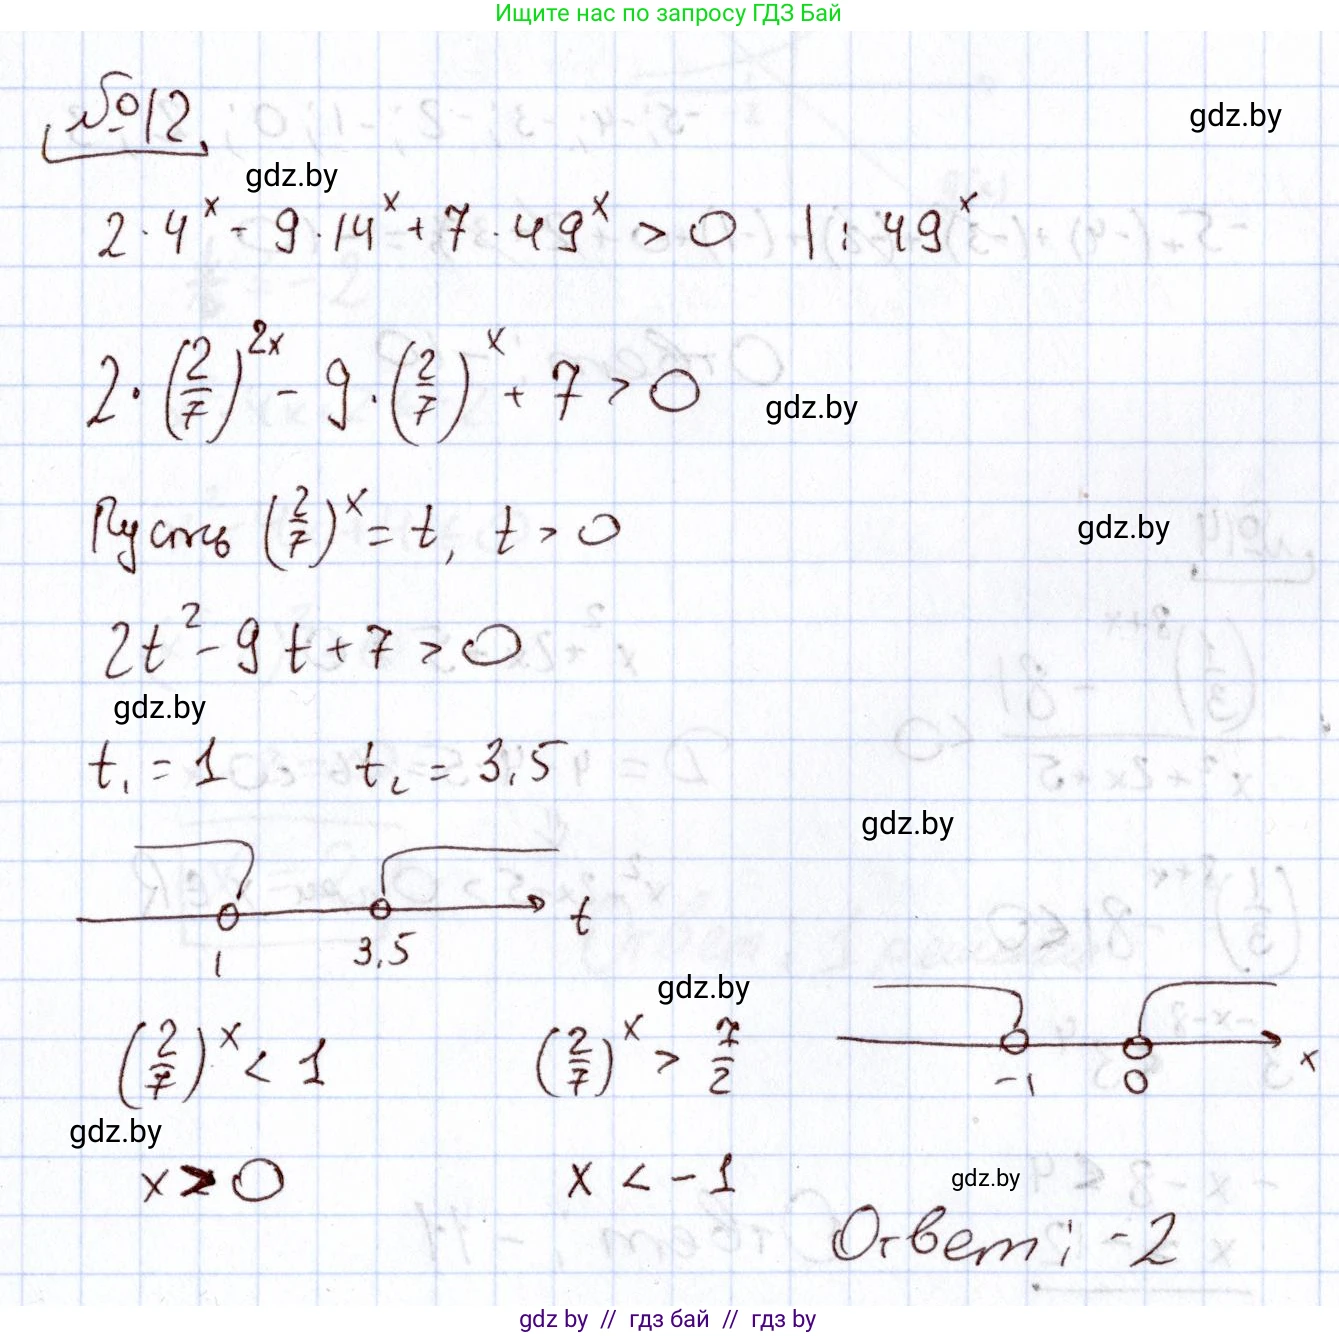 Ищите нас по запросу ГДЗ Бай
№12
gdz.by
gdz.by
2·4^x - 9·14^x + 7·49^x > 0 |:49^x
2·(2/7)^2x - 9·(2/7)^x + 7 > 0
gdz.by
Пусть (2/7)^x = t, t > 0
gdz.by
2t² - 9t + 7 > 0
gdz.by
t₁ = 1 t₂ = 3,5
gdz.by
t
1 3,5
gdz.by
(2/7)^x < 1 (2/7)^x > 7/2
-1 0 x
gdz.by
x > 0 x < -1
gdz.by
Ответ: -2
gdz by // гдз бай // gdz by